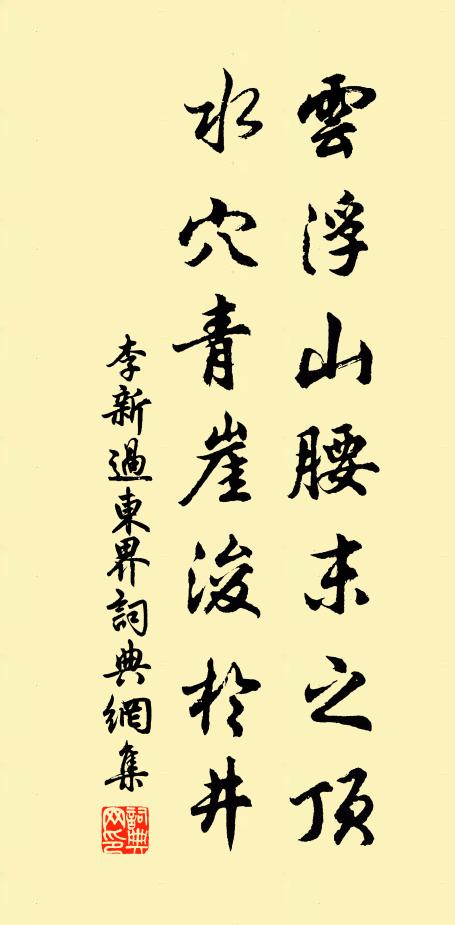 雲浮山腰未之頂
水穴青崖浚於井
李新過東界詞典網集
詞典网印